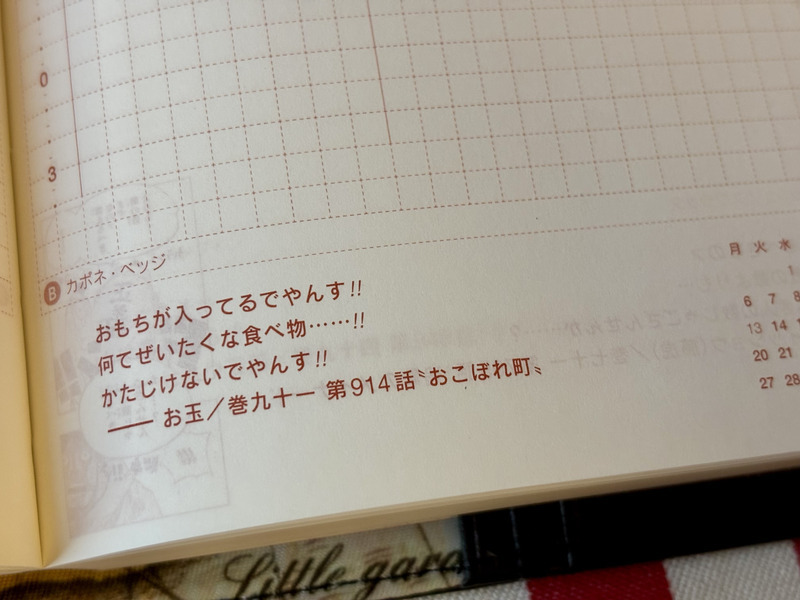 0
3
B カポネ・ベッジ
おもちが入ってるでやんす!!
何てぜいたくな食べ物……!!
かたじけないでやんす!!
── お玉／巻九十一 第914話〝おこぼれ町〟
月 火 水
1
6 7 8
13 14 1
20 21
27 28
Little gar